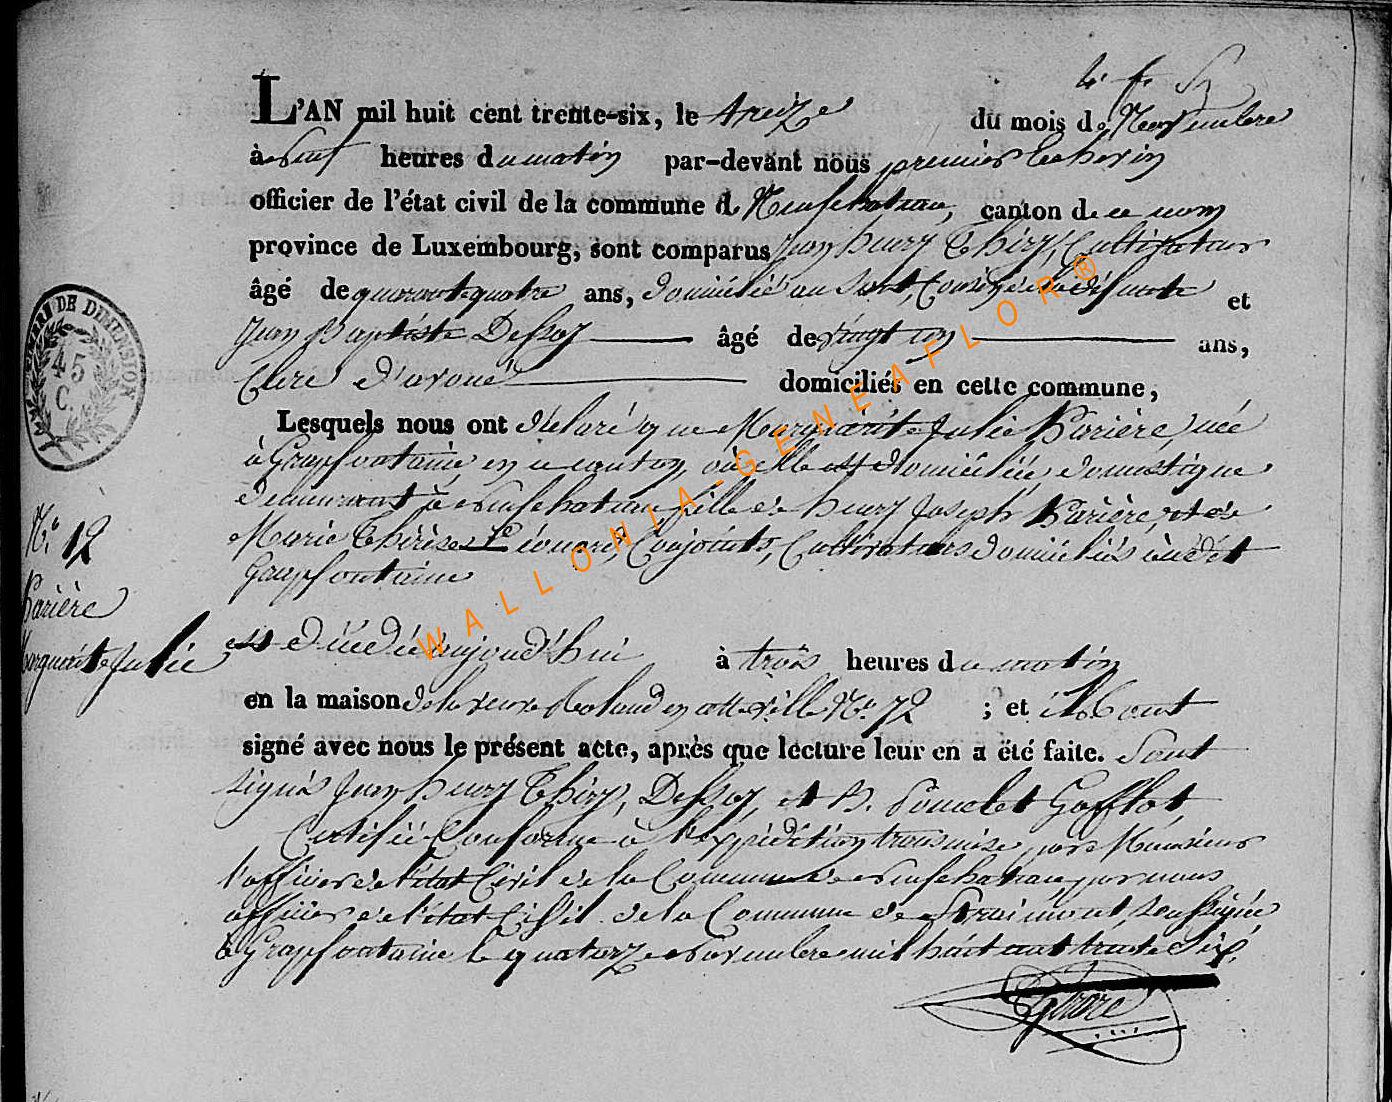 4. f.
L'AN mil huit cent trente-six, le treize du mois de Novembre
à neuf heures du matin par-devant nous premier Echevin
officier de l'état civil de la commune de Neufchateau, canton de ce nom
province de Luxembourg, sont comparus Jean henry Thiry, Cultivateur
âgé de quarante quatre ans, domicilié au Sart, Cousin de la défunte et
Jean Baptiste Dessoy âgé de vingt un ans,
Clerc d'avoué domiciliés en cette commune,
Lesquels nous ont déclaré que Marguerite Julie Parière, née
à Grapfontaine en ce canton, où elle est domiciliée, domestique
demeurant à Neufchateau fille de henry Joseph Parière, et de
Marie Thérèse Léonard, Conjoints, Cultivateurs domiciliés audit
Grapfontaine
est décédée aujourd'hui à trois heures du matin
en la maison de la veuve Roland en cette ville No. 72 ; et ils ont
signé avec nous le présent acte, après que lecture leur en a été faite. Sont
signés Jean henry Thiry, Dessoy, et P. Poncelet Gofflot
Certifié Conforme à l'expédition transmise par Monsieur
l'officier de l'état Civil de la Commune de Neufchateau par nous
officier de l'état Civil de la Commune de Straimont Soussigné
à Grapfontaine le quatorze Novembre mil huit cent trente Six.
TIMBRE DE DIMENSION
45
C.
No. 12
Parière
Marguerite Julie
WALLONIA-GENEAFLOR®